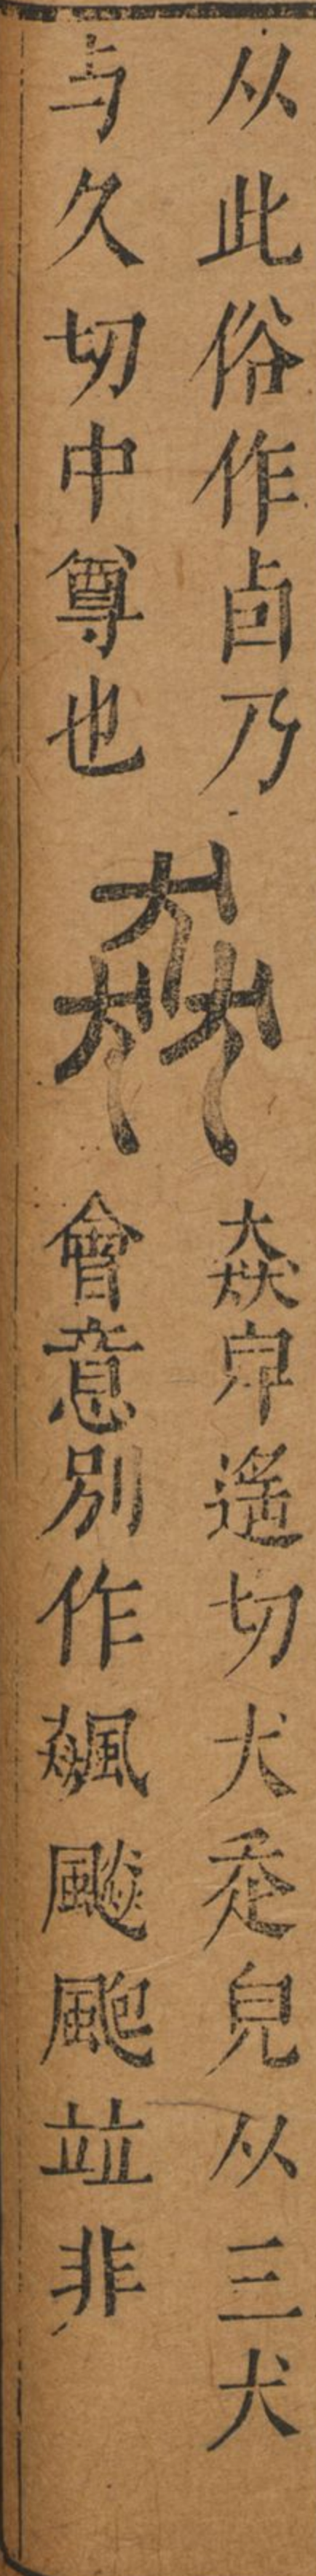 从此俗作卣乃
与久切中尊也
猋
猋卑遙切犬走皃从三犬
會意別作飆飇颮竝非